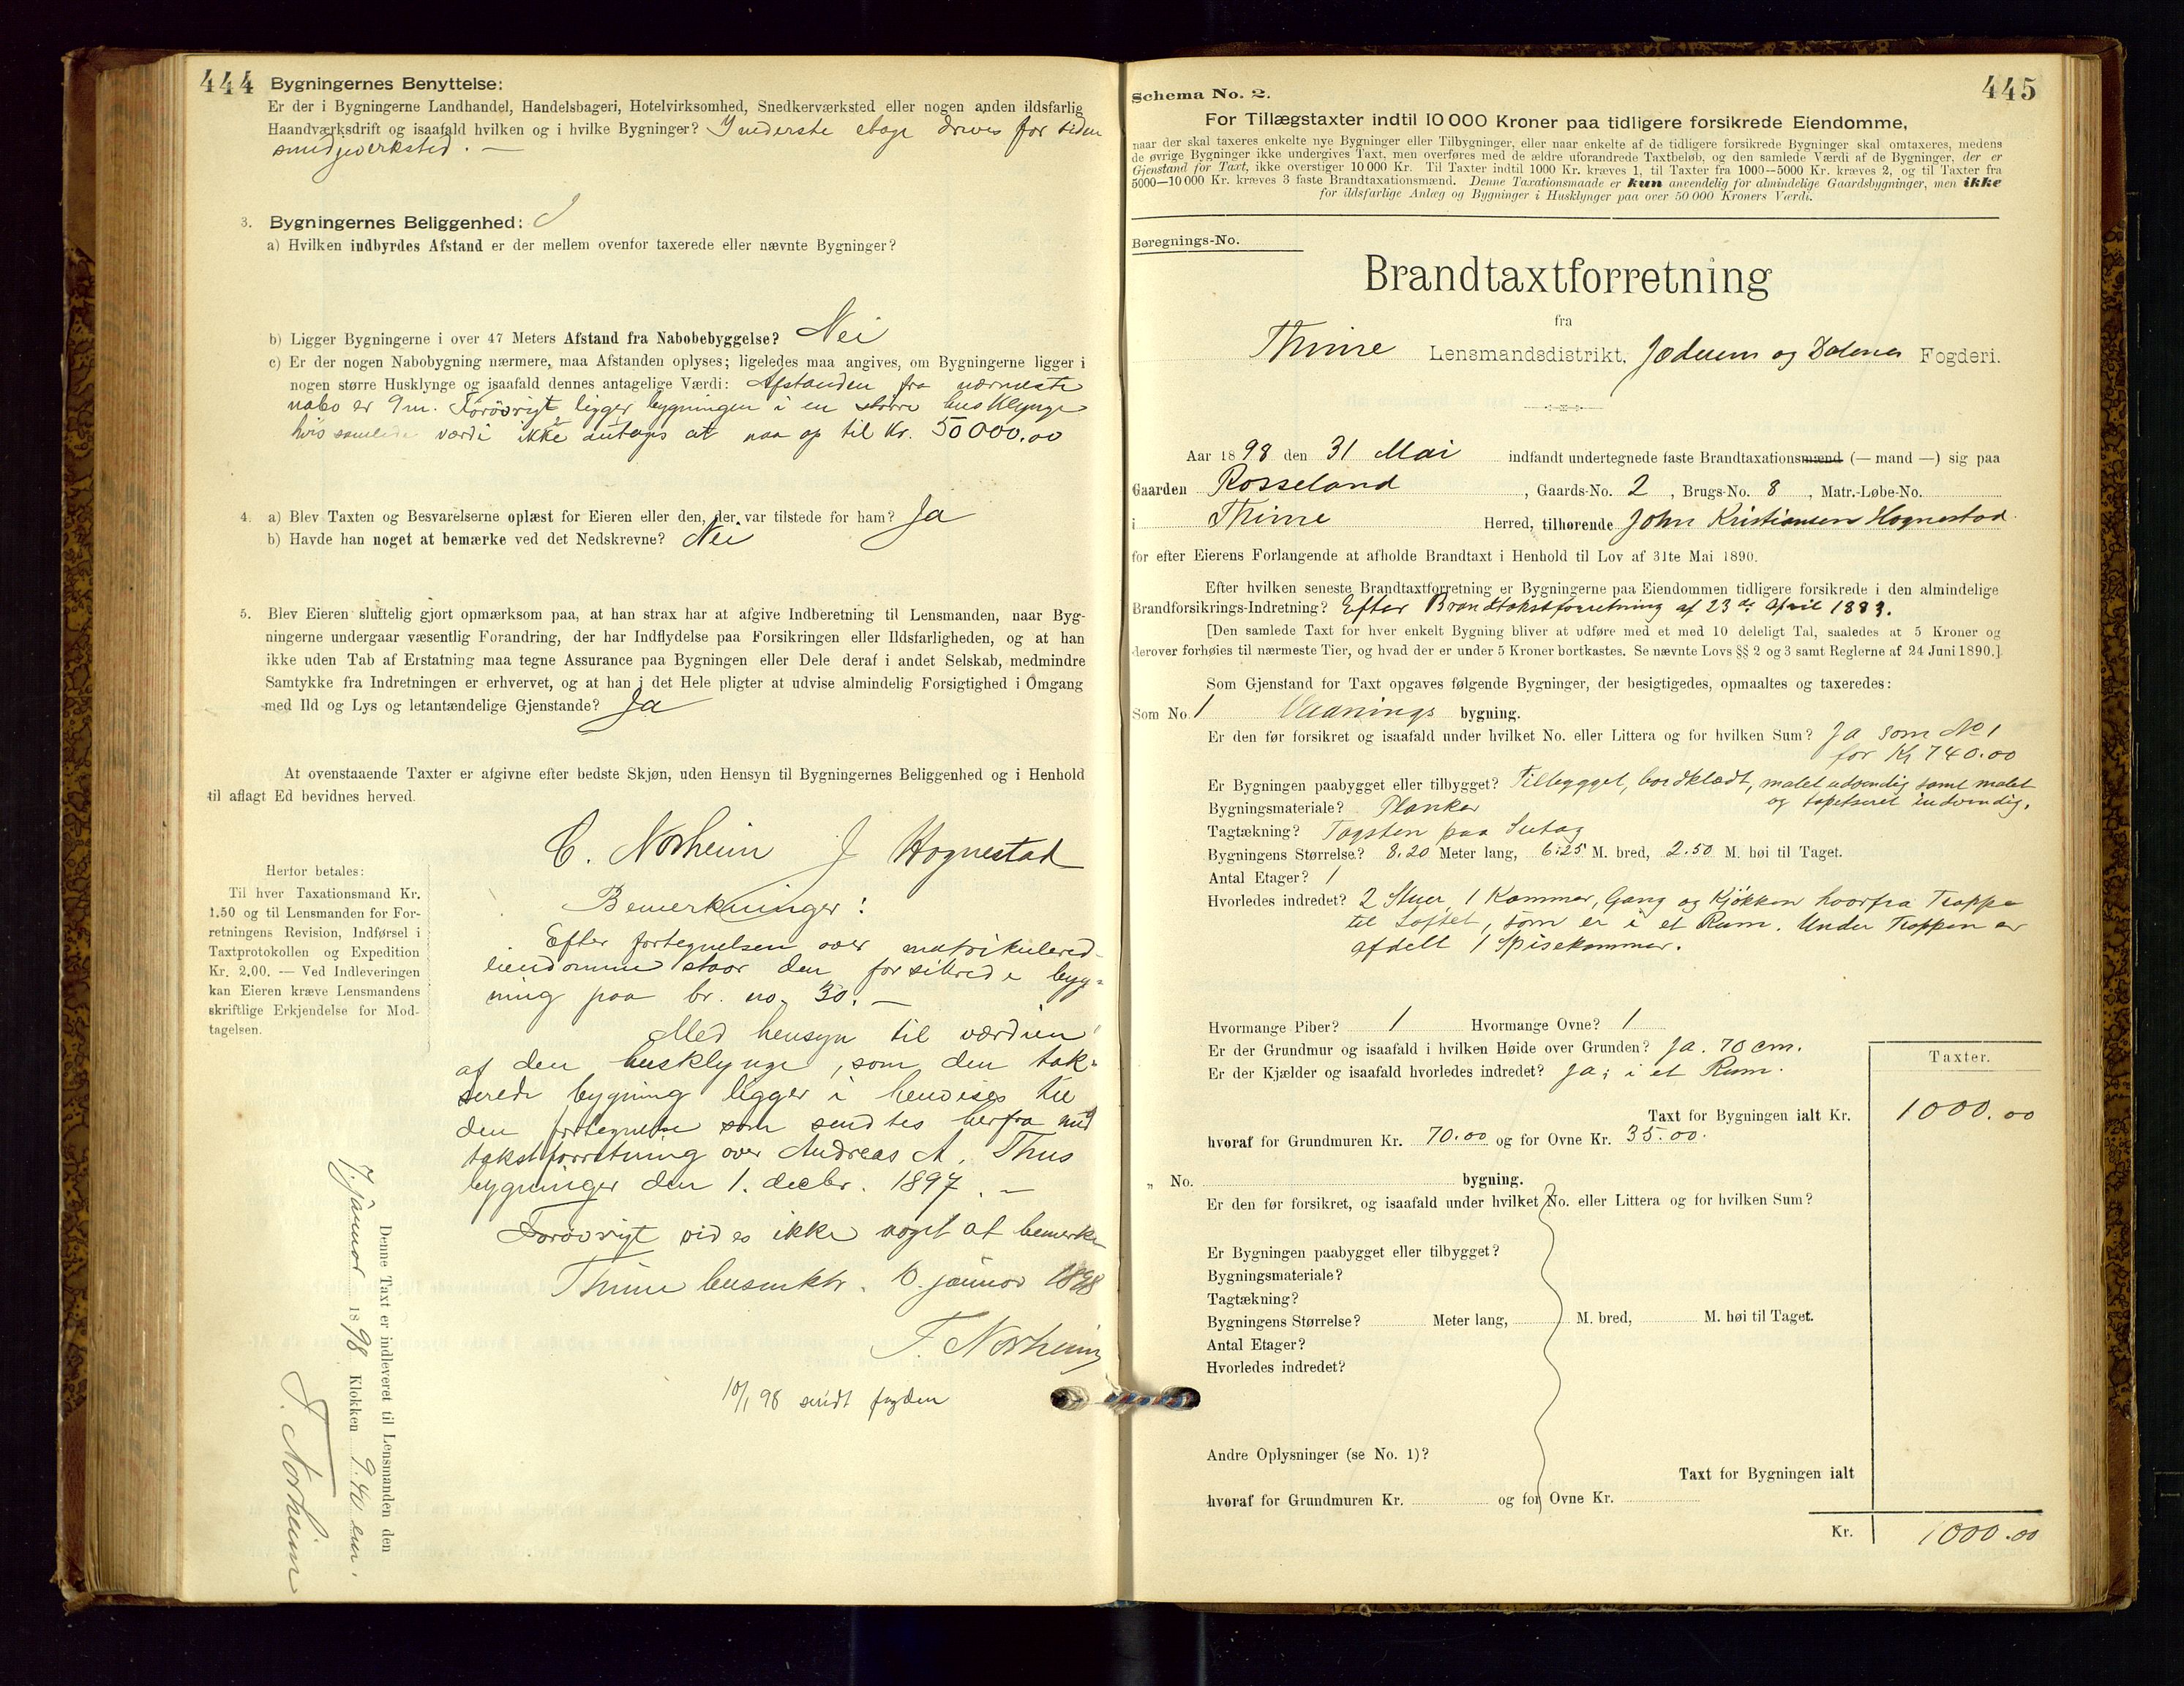 444 Bygningernes Benyttelse:
Er der i Bygningerne Landhandel, Handelsbageri, Hotelvirksomhed, Snedkerværksted eller nogen anden ildsfarlig
Haandværksdrift og isaafald hvilken og i hvilke Bygninger? I nederste etage drives for tiden
smidjeverksted. —
3. Bygningernes Beliggenhed:
a) Hvilken indbyrdes Afstand er der mellem ovenfor taxerede eller nævnte Bygninger?
b) Ligger Bygningerne i over 47 Meters Afstand fra Nabobebyggelse? Nei
c) Er der nogen Nabobygning nærmere, maa Afstanden oplyses; ligeledes maa angives, om Bygningerne ligger i
nogen større Husklynge og isaafald dennes antagelige Værdi: Afstanden fra nærmeste
nabo er 9 m. Forøvrigt ligger bygningen i en større husklynge
hvis samlede værdi ikke antages at naa op til Kr. 50000.00
4. a) Blev Taxten og Besvarelserne oplæst for Eieren eller den, der var tilstede for ham? Ja
b) Havde han noget at bemærke ved det Nedskrevne? Nei
5. Blev Eieren sluttelig gjort opmærksom paa, at han strax har at afgive Indberetning til Lensmanden, naar Byg-
ningerne undergaar væsentlig Forandring, der har Indflydelse paa Forsikringen eller Ildsfarligheden, og at han
ikke uden Tab af Erstatning maa tegne Assurance paa Bygningen eller Dele deraf i andet Selskab, medmindre
Samtykke fra Indretningen er erhvervet, og at han i det Hele pligter at udvise almindelig Forsigtighed i Omgang
med Ild og Lys og letantændelige Gjenstande? Ja
At ovenstaaende Taxter er afgivne efter bedste Skjøn, uden Hensyn til Bygningernes Beliggenhed og i Henhold
til aflagt Ed bevidnes herved.
C. Norheim J Hognestad
Herfor betales:
Til hver Taxationsmand Kr.
1.50 og til Lensmanden for For-
retningens Revision, Indførsel i
Taxtprotokollen og Expedition
Kr. 2.00. — Ved Indleveringen
kan Eieren kræve Lensmandens
skriftlige Erkjendelse for Mod-
tagelsen.
Bemerkninger:
Efter fortegnelsen over matrikulered-
eiendomme staar den forsikrede byg-
ning paa br. no. 30. —
Med hensyn til værdien
af den husklynge, som den tak-
serede bygning ligger i henvises til
den fortegnelse som sendtes herfra med
takstforretning over Andreas A. Thus
bygninger den 1. decbr. 1897. —
Forøvrigt vides ikke noget at bemerke
Thime lensmktr. 10. januar 1898
T. Norheim
10/1 98 sendt fogden
Denne Taxt er indleveret til Lensmanden den
7. januar 1898 Klokken 9.40 em.
T. Norheim
445
Schema No. 2.
For Tillægstaxter indtil 10 000 Kroner paa tidligere forsikrede Eiendomme,
naar der skal taxeres enkelte nye Bygninger eller Tilbygninger, eller naar enkelte af de tidligere forsikrede Bygninger skal omtaxeres, medens
de øvrige Bygninger ikke undergives Taxt, men overføres med de ældre uforandrede Taxtbeløb, og den samlede Værdi af de Bygninger, der er
Gjenstand for Taxt, ikke overstiger 10 000 Kr. Til Taxter indtil 1000 Kr. kræves 1, til Taxter fra 1000—5000 Kr. kræves 2, og til Taxter fra
5000—10 000 Kr. kræves 3 faste Brandtaxationsmænd. Denne Taxationsmaade er kun anvendelig for almindelige Gaardsbygninger, men ikke
for ildsfarlige Anlæg og Bygninger i Husklynger paa over 50 000 Kroners Værdi.
Beregnings-No.
Brandtaxtforretning
fra
Thime Lensmandsdistrikt, Jæderen og Dalenes Fogderi.
Aar 1898 den 31 Mai indfandt undertegnede faste Brandtaxationsmænd (— mand —) sig paa
Gaarden Rosseland, Gaards-No. 2, Brugs-No. 8, Matr.-Løbe-No.
i Thime Herred, tilhørende John Kristiansen Hognestad
for efter Eierens Forlangende at afholde Brandtaxt i Henhold til Lov af 31te Mai 1890.
Efter hvilken seneste Brandtaxtforretning er Bygningerne paa Eiendommen tidligere forsikrede i den almindelige
Brandforsikrings-Indretning? Efter Brandtakstforretning af 23de April 1883.
[Den samlede Taxt for hver enkelt Bygning bliver at udføre med et med 10 deleligt Tal, saaledes at 5 Kroner og
derover forhøies til nærmeste Tier, og hvad der er under 5 Kroner bortkastes. Se nævnte Lovs §§ 2 og 3 samt Reglerne af 24 Juni 1890.]
Som Gjenstand for Taxt opgaves følgende Bygninger, der besigtigedes, opmaaltes og taxeredes:
Som No. 1 Vaanings bygning.
Er den før forsikret og isaafald under hvilket No. eller Littera og for hvilken Sum? Ja som No 1
for Kr 740.00
Er Bygningen paabygget eller tilbygget? Tilbygget, bordklædt, malet udvendig samt malet
og tapetseret indvendig.
Bygningsmateriale? Planker
Tagtækning? Tagsten paa Sutag
Bygningens Størrelse? 8.20 Meter lang, 6.25 M. bred, 2.50 M. høi til Taget.
Antal Etager? 1
Hvorledes indredet? 2 Stuer, 1 Kammer, Gang og Kjøkken hvorfra Trappe
til Loftet, som er i et Rum. Under Trappen er
afdelt 1 Spisekammer.
Hvormange Piber? 1 Hvormange Ovne? 1
Er der Grundmur og isaafald i hvilken Høide over Grunden? Ja. 70 cm.
Er der Kjælder og isaafald hvorledes indredet? Ja; i et Rum.
Taxter.
Taxt for Bygningen ialt Kr. 1000.00
hvoraf for Grundmuren Kr. 70.00 og for Ovne Kr. 35.00.
„ No. bygning.
Er den før forsikret, og isaafald under hvilket No. eller Littera og for hvilken Sum?
Er Bygningen paabygget eller tilbygget?
Bygningsmateriale?
Tagtækning?
Bygningens Størrelse? Meter lang, M. bred, M. høi til Taget.
Antal Etager?
Hvorledes indredet?
Andre Oplysninger (se No. 1)?
Taxt for Bygningen ialt
hvoraf for Grundmuren Kr. og for Ovne Kr.
Kr. 1000.00